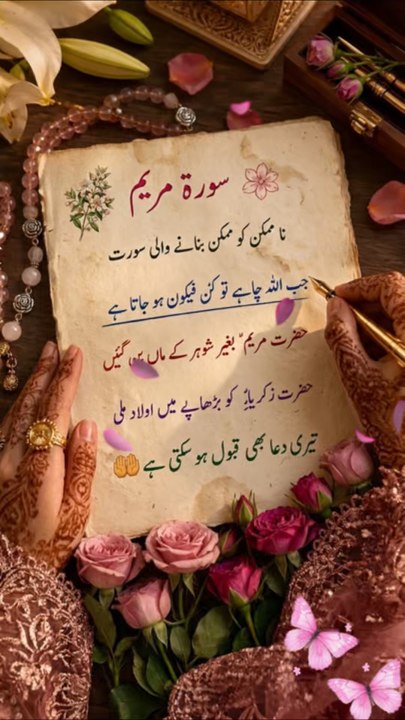 سورۃ مریم
نا ممکن کو ممکن بنانے والی سورت
جب اللہ چاہے تو کن فیکون ہو جاتا ہے
حضرت مریمؑ بغیر شوہر کے ماں بن گئیں
حضرت زکریاؑ کو بڑھاپے میں اولاد ملی
تیری دعا بھی قبول ہو سکتی ہے 🤲